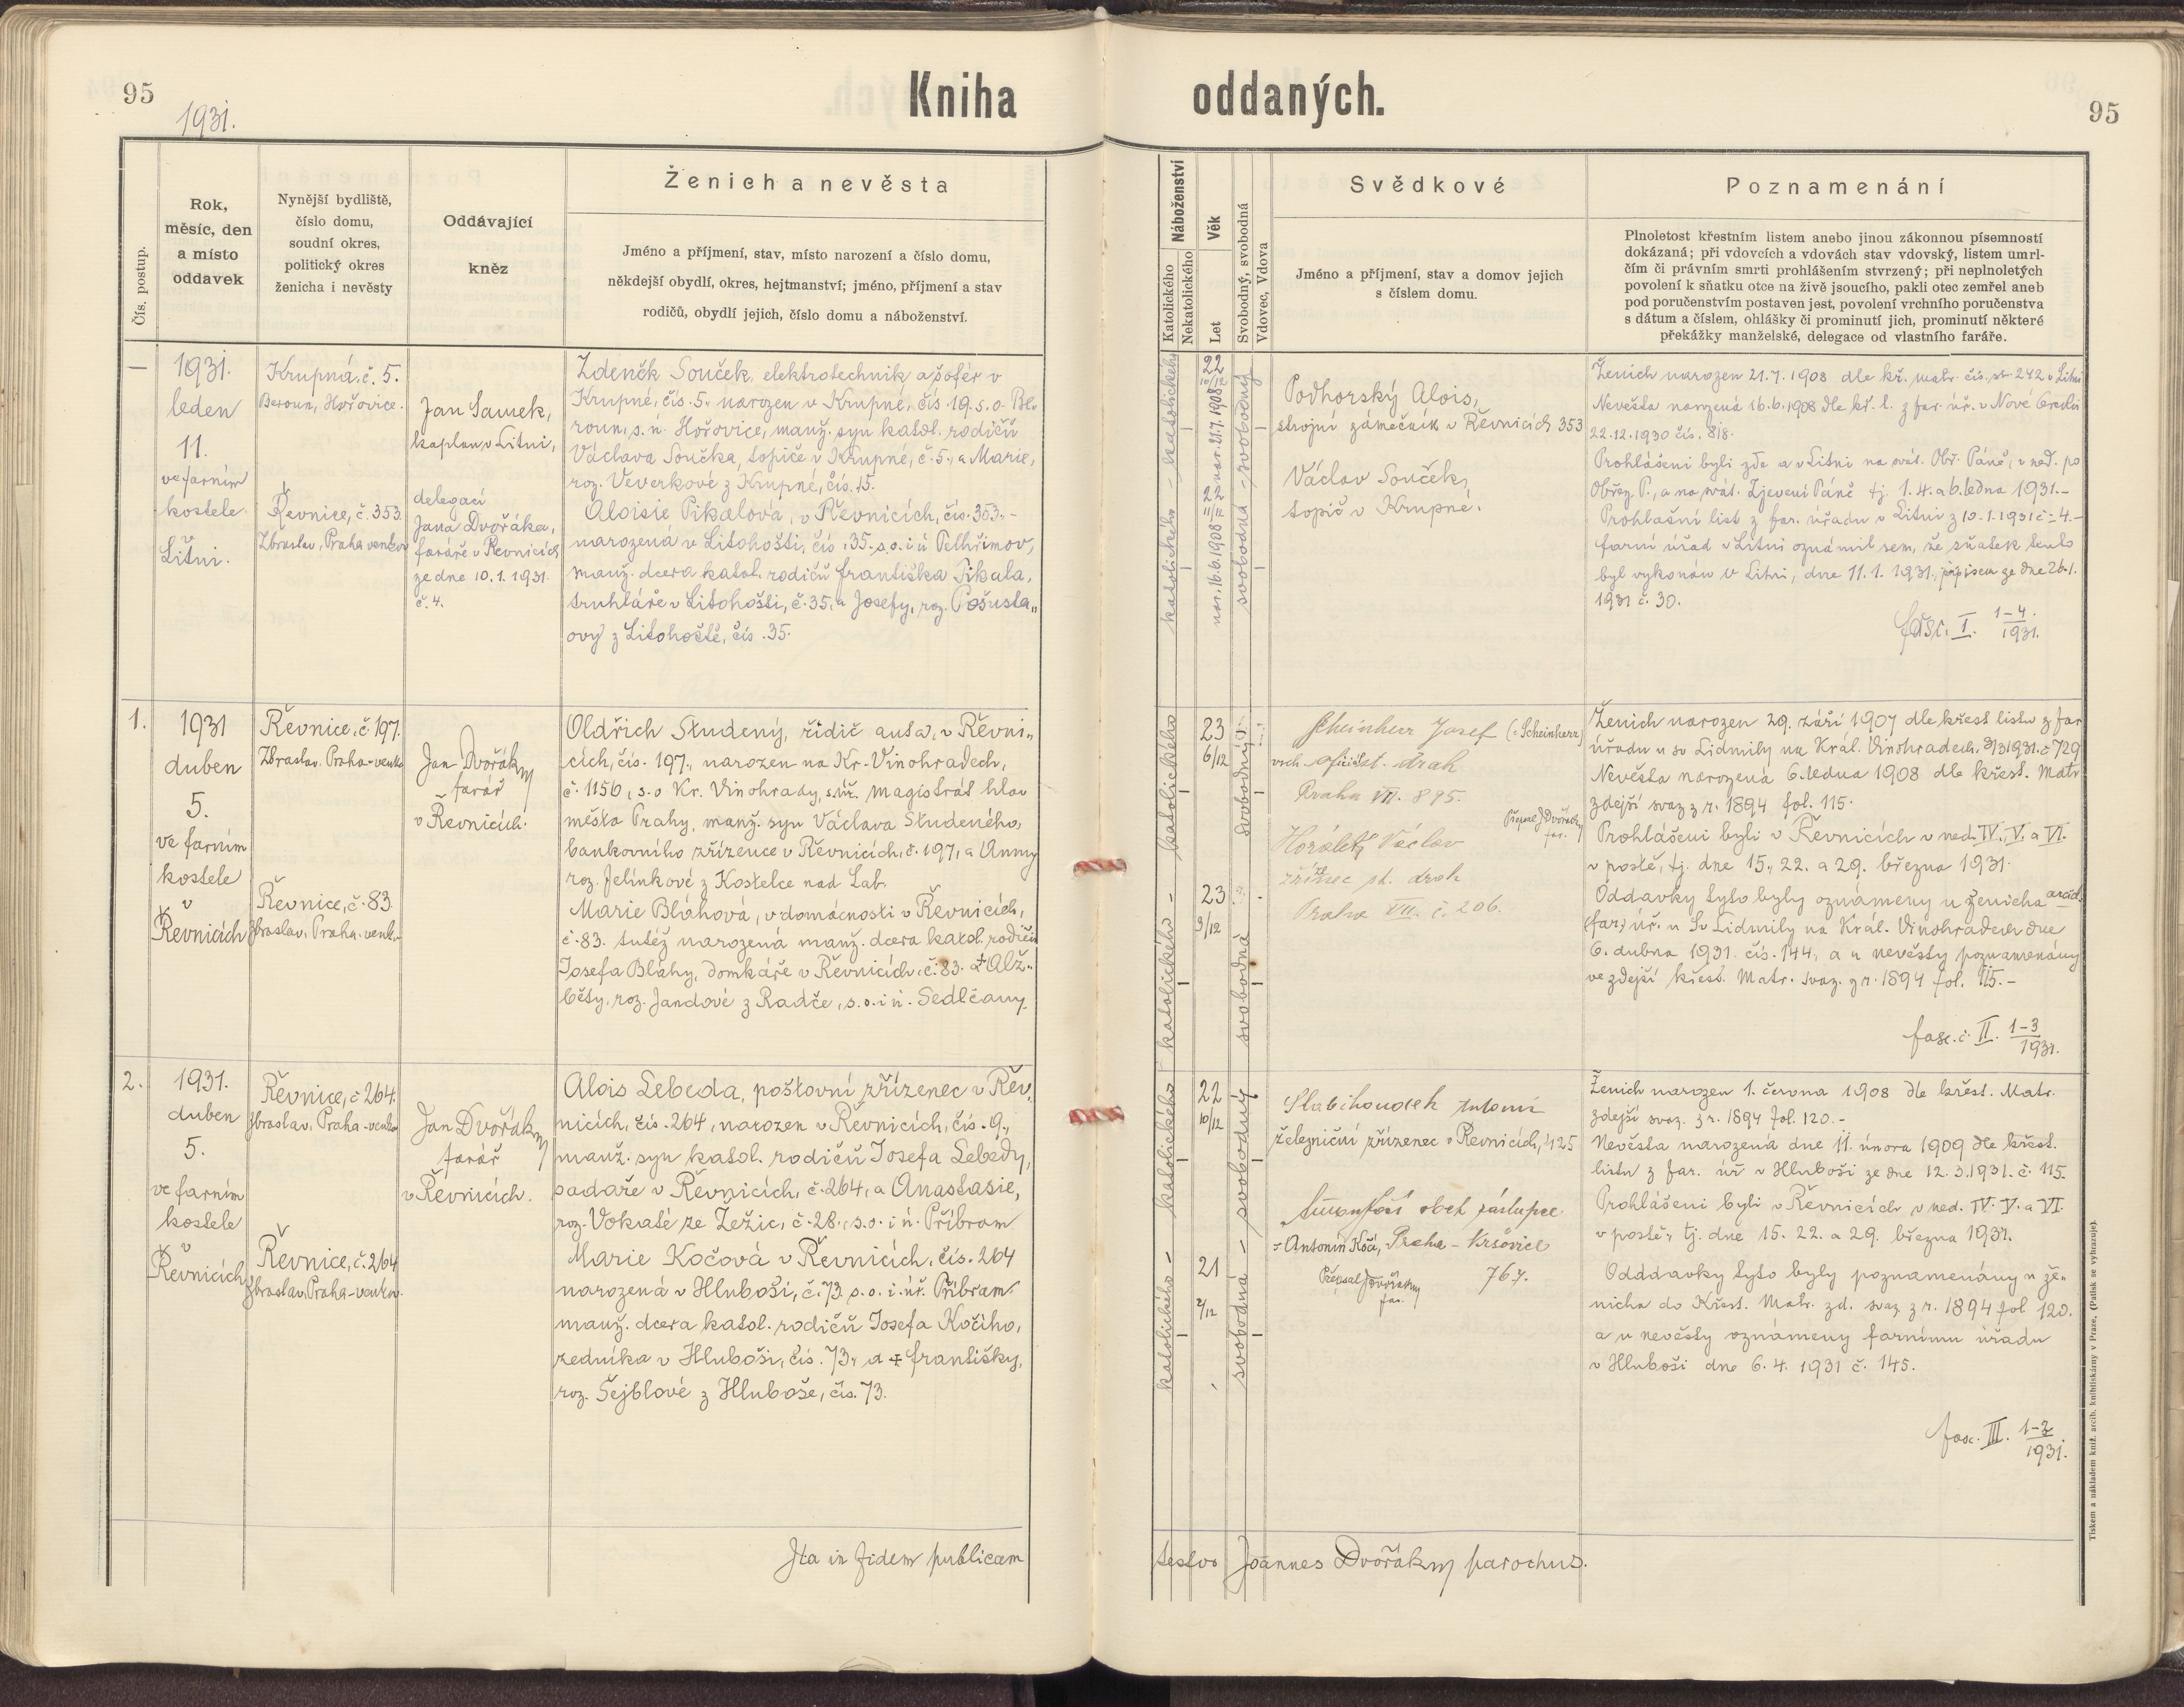 95
1931.
Kniha oddaných.
95
Čís. postup.
Rok,
měsíc, den
a místo
oddavek
Nynější bydliště,
číslo domu,
soudní okres,
politický okres
ženicha i nevěsty
Oddávající
kněz
Ženich a nevěsta
Jméno a příjmení, stav, místo narození a číslo domu,
někdejší obydlí, okres, hejtmanství; jméno, příjmení a stav
rodičů, obydlí jejich, číslo domu a náboženství.
Náboženství
Katolického
Nekatolického
Věk
Let
Svobodný, svobodná
Vdovec, Vdova
Svědkové
Jméno a příjmení, stav a domov jejich
s číslem domu.
Poznamenání
Plnoletost křestním listem anebo jinou zákonnou písemností
dokázaná; při vdovcích a vdovách stav vdovský, listem umrl-
čím či právním smrti prohlášením stvrzený; při neplnoletých
povolení k sňatku otce na živě jsoucího, pakli otec zemřel aneb
pod poručenstvím postaven jest, povolení vrchního poručenstva
s dátum a číslem, ohlášky či prominutí jich, prominutí některé
překážky manželské, delegace od vlastního faráře.
—
1931.
leden
11.
ve farním
kostele
v
Litni.
Krupná, č. 5.
Beroun, Hořovice.
Řevnice, č. 353.
Zbraslav, Praha venkov
Jan Samek,
kaplan v Litni,
delegací
Jana Dvořáka,
faráře v Řevnicích
ze dne 10.1.1931.
č. 4.
Zdeněk Souček, elektrotechnik a šofér v
Krupné, čís. 5. narozen v Krupné, čís. 19. s. o. Be-
roun, s. ú. Hořovice, manž. syn katol. rodičů
Václava Součka, topiče v Krupné, č. 5., a Marie,
roz. Veverkové z Krupné, čís. 15.
Aloisie Pikalova, v Řevnicích, čís. 353. -
narozená v Litohošti, čís. 35. s. o. i ú Pelhřimov,
manž. dcera katol. rodičů Františka Pikala,
truhláře v Litohošti, č. 35, a Josefy, roz. Pošusta„
ový z Litohoště, čís. 35.
katolického - katolického
22
10/12
nar. 21.7.1908
22
11/12
nar. 16.6.1908
svobodná - svobodný
Podhorský Alois,
strojní zámečník v Řevnicích 353
Václav Souček,
topič v Krupné.
Ženich narozen 21.7.1908 dle kř. matr. čís. str. 242 v Litni
Nevěsta narozená 16.6.1908 dle kř. l. z far. úř. v Nové
22.12.1930 čís. 818.
Prohlášeni byli zde a v Litni na svát. Obř. Páně, v ned. po
Obřez. P., a na svát. Zjevení Páně tj. 1. 4. a 6. ledna 1931.-
Prohlašní list z far. úřadu v Litni z 10.1.1931 č. 4.-
Farní úřad v Litni oznámil sem, že sňatek tento
byl vykonán v Litni, dne 11.1.1931., přípisem ze dne 26.1.
1931 č. 30.
fasc. I. 1-4.
1931.
1.
1931
duben
5.
ve farním
kostele
v
Řevnicích
Řevnice, č. 197.
Zbraslav. Praha-venkov
Řevnice, č. 83.
Zbraslav, Praha-venkov
Jan Dvořák
farář
v Řevnicích.
Oldřich Studený, řidič auta, v Řevni„
cích, čís. 197., narozen na Kr. Vinohradech,
č. 1156, s. o Kr. Vinohrady, s. úř. magistrát hlav
města Prahy, manž. syn Václava Studeného,
bankovního zřízence v Řevnicích, č. 197, a Anny
roz. Jelínkové z Kostelce nad Lab.
Marie Bláhová, v domácnosti v Řevnicích,
č. 83. tutéž narozená manž. dcera katol. rodičů
Josefa Bláhy, domkáře v Řevnicích, č. 83. a † Alž„
běty, roz. Jandové z Radče, s. o. i ú. Sedlčany.
katolického - katolického
23
6/12
23
3/12
svobodná svobodný
Scheinherr Josef (= Scheinherr)
vrch. oficiál st. drah
Praha VII. 895.
Přepsal J Dvořák
far.
Horálek Václav
zřízenec st. drah
Praha VII. č. 206.
Ženich narozen 29. září 1907 dle křest listu z far
úřadu u sv Lidmily na Král. Vinohradech. č 729
Nevěsta narozená 6. ledna 1908 dle křest. Matr
zdejší svaz z r. 1894 fol. 115.
Prohlášeni byli v Řevnicích v ned. IV., V. a VI.
v postě, tj. dne 15., 22. a 29. března 1931.
Oddavky tyto byly oznámeny u ženicha arcid.
(far.) úř. u Sv Lidmily na Král. Vinohradech dne
6. dubna 1931. čís. 144, a u nevěsty poznamenány
ve zdejší křest. Matr. svaz. z r. 1894 fol. 115.-
fasc. č. II. 1-3
1931.
2.
1931.
duben
5.
ve farním
kostele
v
Řevnicích
Řevnice, č 264.
Zbraslav, Praha-venkov
Řevnice, č. 264
Zbraslav, Praha-venkov.
Jan Dvořák
farář
v Řevnicích.
Alois Lebeda, poštovní zřízenec v Řev„
nicích, čís. 264, narozen v Řevnicích, čís. 9.,
manž. syn katol. rodičů Josefa Lebedy,
sadaře v Řevnicích, č. 264, a Anastasie,
roz. Vokaté ze Žežic, č. 28., s. o. i ú. Příbram
Marie Kočová v Řevnicích, čís. 264
narozená v Hluboši, č. 73. s. o. i. úř. Příbram
manž. dcera katol. rodičů Josefa Kočího,
zedníka v Hluboši, čís. 73, a † Františky,
roz. Šejblové z Hluboše, čís. 73.
katolického - katolického
22
10/12
21
2/12
svobodná - svobodný
Slabihoudek Antonín
železniční zřízenec v Řevnicích, č 125
obch zástupce
= Antonín Kočí, Praha - Vršovice
Přepsal J Dvořák 767.
far.
Ženich narozen 1. června 1908 dle křest. Matr.
zdejší svaz. z r. 1894 fol. 120.-
Nevěsta narozená dne 11. února 1909 dle křest.
listu z far. úř v Hluboši ze dne 12.3.1931. č. 115.
Prohlášeni byli v Řevnicích v ned. IV. V. a VI.
v postě, tj. dne 15. 22. a 29. března 1931.
Odddavky tyto byly poznamenány u že„
nicha do Křest. Matr. zd. svaz z r. 1894 fol 120.
a u nevěsty oznámeny farnímu úřadu
v Hluboši dne 6. 4. 1931 č. 145.
fasc. III. 1-2
1931.
Ita in fidem publicam testor Joannes Dvořák parochus.
Tiskem a nákladem kníž. arcib. knihtiskárny v Praze. (Patisk se vyhrazuje).